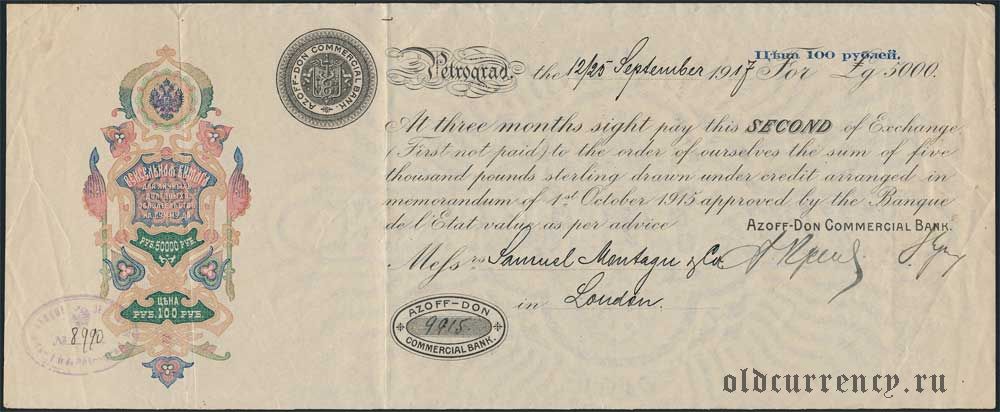 AZOFF-DON COMMERCIAL BANK.
Petrograd. the 12/25 September 1917 For £g 5000.
Цѣна 100 рублей.
At three months sight pay this SECOND of Exchange
(First not paid) to the order of ourselves the sum of five
thousand pounds sterling drawn under credit arranged in
memorandum of 1st October 1915 approved by the Banque
de l'Etat value as per advice
AZOFF-DON COMMERCIAL BANK.
Messrs Samuel Montagu & Co.
in London.
AZOFF-DON
9915
COMMERCIAL BANK.
ВЕКСЕЛЬНАЯ БУМАГА
ДЛЯ ЛИЧНЫХЪ
ДОЛГОВЫХЪ
ОБЯЗАТЕЛЬСТВЪ
НА СУММУ ДО
РУБ. 50000 РУБ.
ЦѢНА
РУБ. 100 РУБ.
№ 8990
oldcurrency.ru